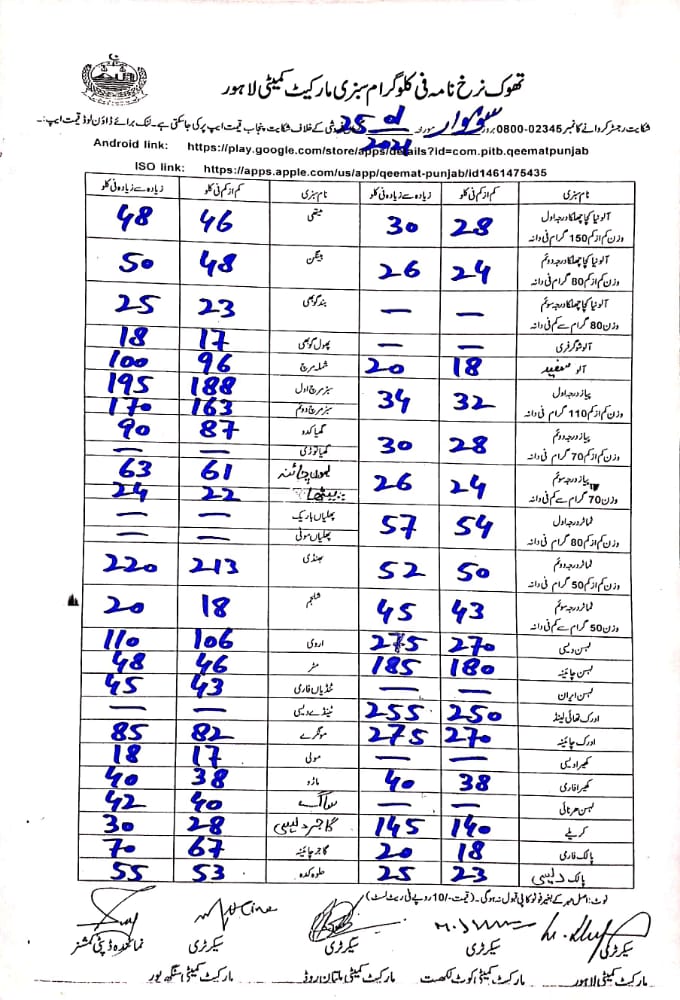 تھوک نرخ نامہ فی کلوگرام سبزی مارکیٹ کمیٹی لاہور
شکایت رجسٹر کروانے کا نمبر 02345-0800 بروز سوموار مورخہ 25 کے خلاف شکایت پنجاب قیمت ایپ پر کی جاسکتی ہے۔ لنک برائے ڈاؤن لوڈ قیمت ایپ:-
2021
Android link: https://play.google.com/store/apps/details?id=com.pitb.qeematpunjab
ISO link: https://apps.apple.com/us/app/qeemat-punjab/id1461475435
نام سبزی کم از کم فی کلو زیادہ سے زیادہ فی کلو نام سبزی کم از کم فی کلو زیادہ سے زیادہ فی کلو
آلو نیا کچا چھلکا درجہ اول 28 30 میتھی 46 48
وزن کم از کم 150 گرام فی دانہ
آلو نیا کچا چھلکا درجہ دوئم 24 26 بینگن 48 50
وزن کم از کم 80 گرام فی دانہ
آلو نیا کچا چھلکا درجہ سوئم — — بند گوبھی 23 25
وزن 80 گرام سے کم فی دانہ
آلو شوگر فری — — پھول گوبھی 17 18
آلو سفید 18 20 شملہ مرچ 96 100
پیاز درجہ اول 32 34 سبز مرچ اول 188 195
وزن کم از کم 110 گرام فی دانہ سبز مرچ دوئم 163 170
پیاز درجہ دوئم 28 30 گھیا کدو 87 90
وزن کم از کم 70 گرام فی دانہ گھیا توری — —
پیاز درجہ سوئم 24 26 لیموں چائنہ 61 63
وزن 70 گرام سے کم فی دانہ پیٹھا 22 24
ٹماٹر درجہ اول 54 57 پھلیاں باریک — —
وزن کم از کم 80 گرام فی دانہ پھلیاں موٹی — —
ٹماٹر درجہ دوئم 50 52 بھنڈی 213 220
وزن کم از کم 50 گرام فی دانہ
ٹماٹر درجہ سوئم 43 45 شلجم 18 20
وزن 50 گرام سے کم فی دانہ
لہسن دیسی 270 275 اروی 106 110
لہسن چائینہ 180 185 مٹر 46 48
لہسن ایران — — ٹینڈیاں فارمی 43 45
ادرک تھائی لینڈ 250 255 ٹینڈے دیسی — —
ادرک چائینہ 270 275 مونگرے 82 85
کھیرا دیسی — — مولی 17 18
کھیرا فارمی 38 40 ماڑو 38 40
لہسن ہرنائی — — ساگ 40 42
کریلے 140 145 گاجر دیسی 28 30
پالک فارمی 18 20 گاجر چائینہ 67 70
پالک دیسی 23 25 حلوہ کدو 53 55
نوٹ: اصل مہر کے بغیر فوٹو کاپی قبول نہ ہوگی۔ (قیمت -/10 روپے فی ریٹ لسٹ)
سیکرٹری سیکرٹری سیکرٹری سیکرٹری نمائندہ ڈپٹی کمشنر
مارکیٹ کمیٹی لاہور مارکیٹ کمیٹی کوٹ لکھپت مارکیٹ کمیٹی ملتان روڈ مارکیٹ کمیٹی سنگھ پور